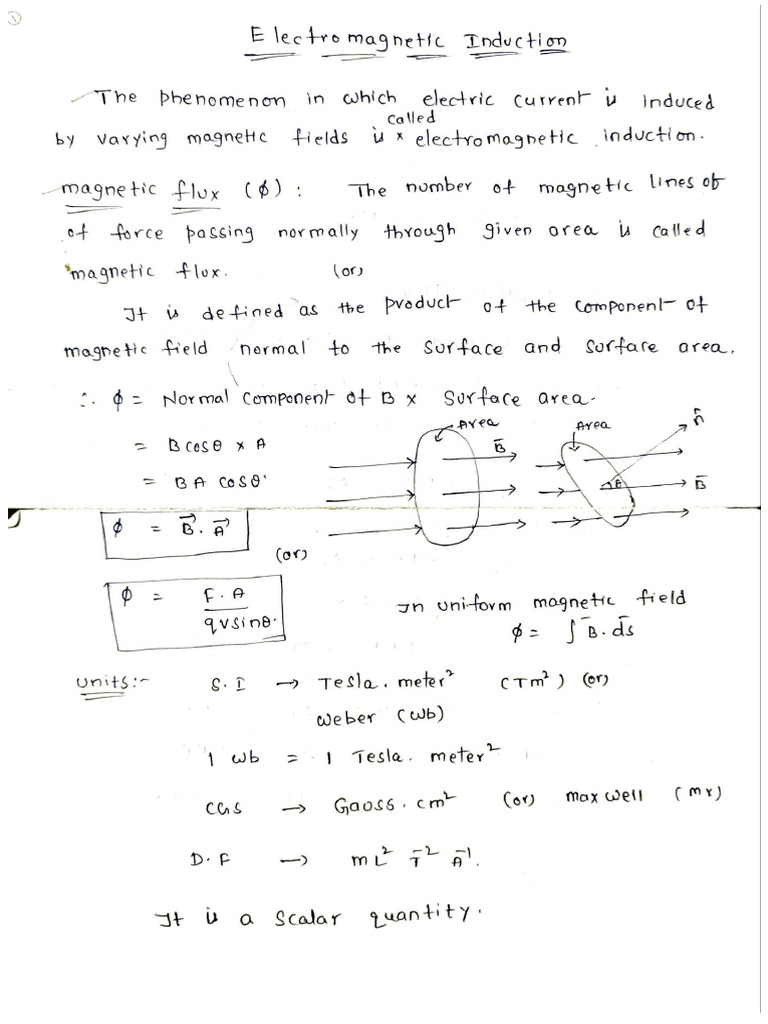 1
Electromagnetic Induction
The phenomenon in which electric current is induced
called
by varying magnetic fields is × electromagnetic induction.
magnetic flux (ϕ) : The number of magnetic lines of
of force passing normally through given area is called
magnetic flux. (or)
It is defined as the product of the component of
magnetic field normal to the surface and surface area.
∴ ϕ = Normal component of B × Surface area.
= B cosθ × A
= BA cosθ
Area B̄ Area n̂
θ B̄
ϕ = B⃗ . A⃗
(or)
ϕ = F. A / qvsinθ.
In uniform magnetic field
ϕ = ∫ B̄. ds̄
Units:- S.I → Tesla. meter² (Tm²) (or)
Weber (Wb)
1 wb = 1 Tesla. meter²
CGS → Gaoss. cm² (or) maxwell (mx)
D.F → mL² T⁻² A⁻¹.
It is a scalar quantity.